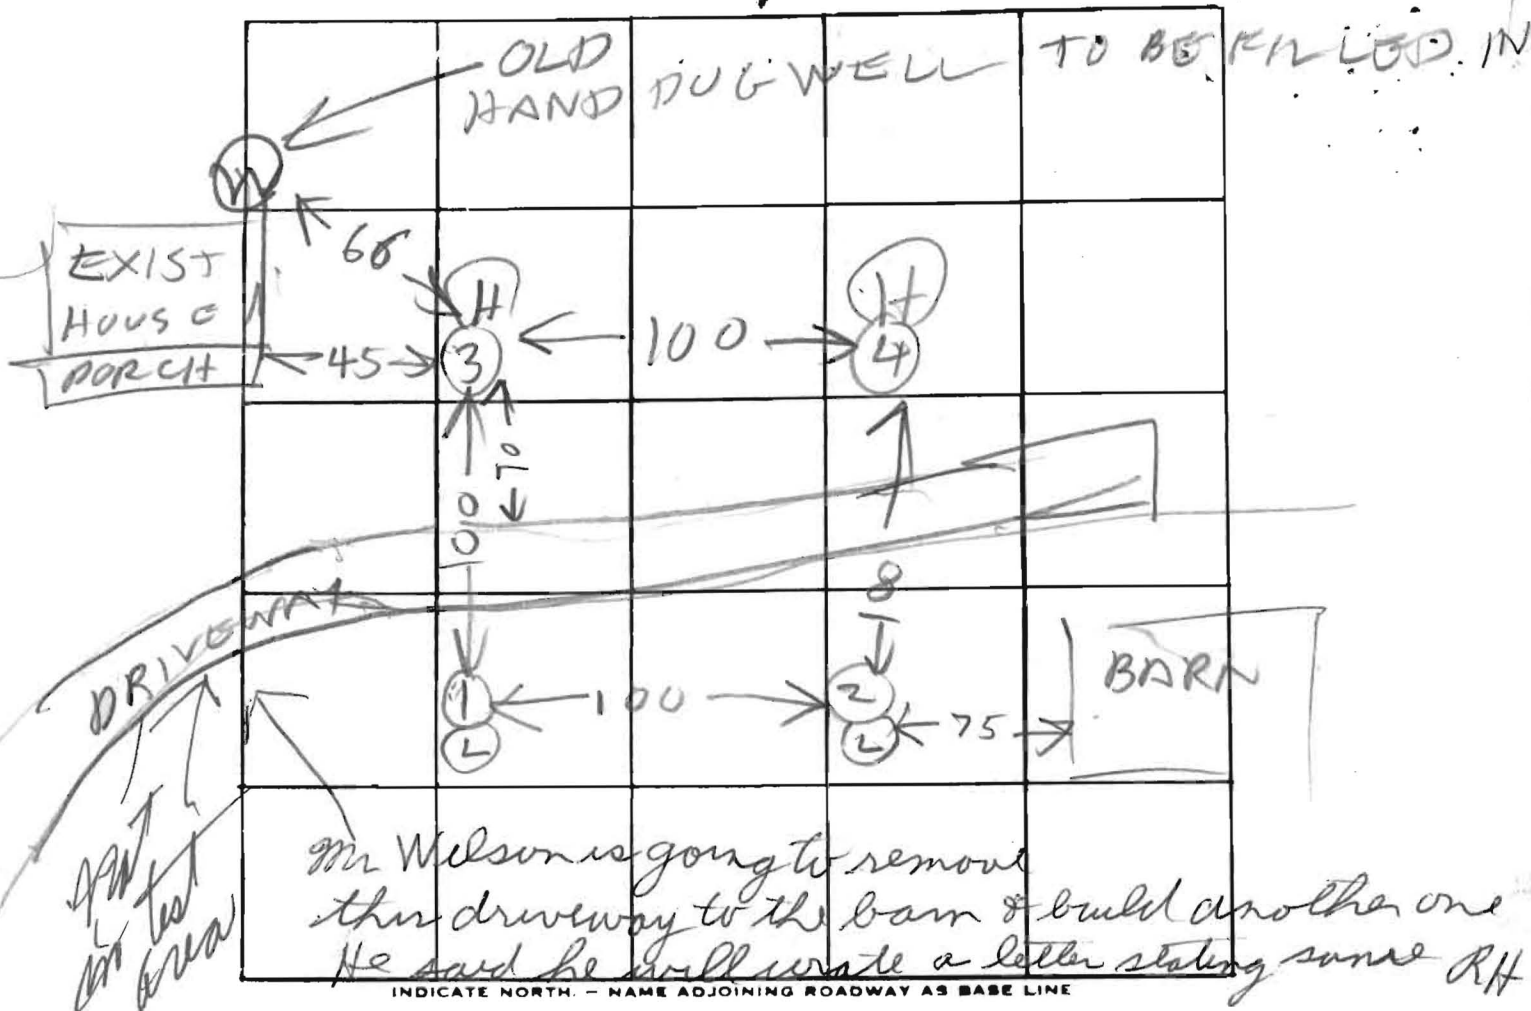 OLD
HAND DUG WELL TO BE FILLED IN
W
EXIST
HOUSE
PORCH
66
H
H
45
3
100
4
70
100
18
DRIVEWAY
1
100
2
L
L
75
BARN
in test
area
Mr Wilson is going to remove
this driveway to the barn & build another one
He said he will write a letter stating same RH
INDICATE NORTH. - NAME ADJOINING ROADWAY AS BASE LINE